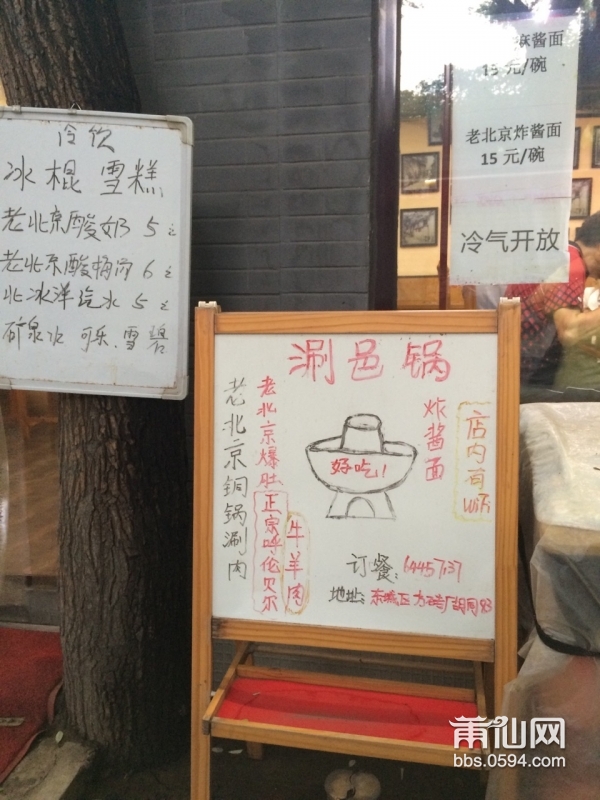 冷饮
冰棍 雪糕
老北京酸奶 5元
老北京酸梅汤 6元
北冰洋汽水 5元
矿泉水 可乐.雪碧
麻酱面
15元/碗
老北京炸酱面
15元/碗
冷气开放
涮邑锅
老北京铜锅涮肉
老北京爆肚
正宗呼伦贝尔
牛羊肉
好吃!!
炸酱面
店内有
WiFi
订餐:64457137
地址:东城区方砖厂胡同83
莆仙网
bbs.0594.com